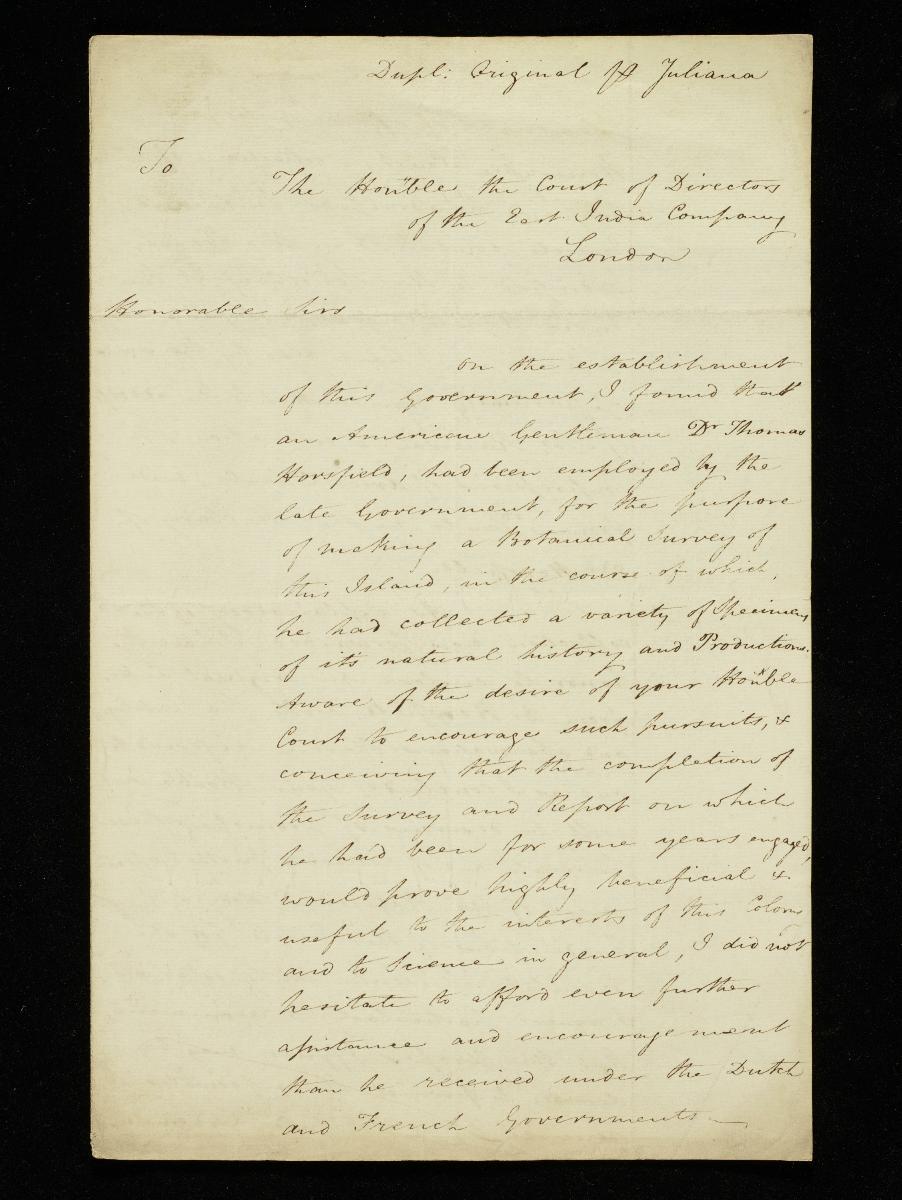 Dupl: Original ⅌ Juliana
To
The Hon'ble the Court of Directors
of the East India Company
London
Honorable Sirs
On the establishment
of this Government, I found that
an American Gentleman Dr Thomas
Horsfield, had been employed by the
late Government, for the purpose
of making a Botanical Survey of
this Island, in the course of which,
he had collected a variety of Specimens
of it's natural history and Productions.
Aware of the desire of your Hon'ble
Court to encourage such pursuits, &
conceiving that the completion of
the Survey and Report on which
he had been for some years engaged,
would prove highly beneficial &
useful to the interests of this Colony
and to Science in general, I did not
hesitate to afford even further
assistance and encouragement
than he received under the Dutch
and French Governments